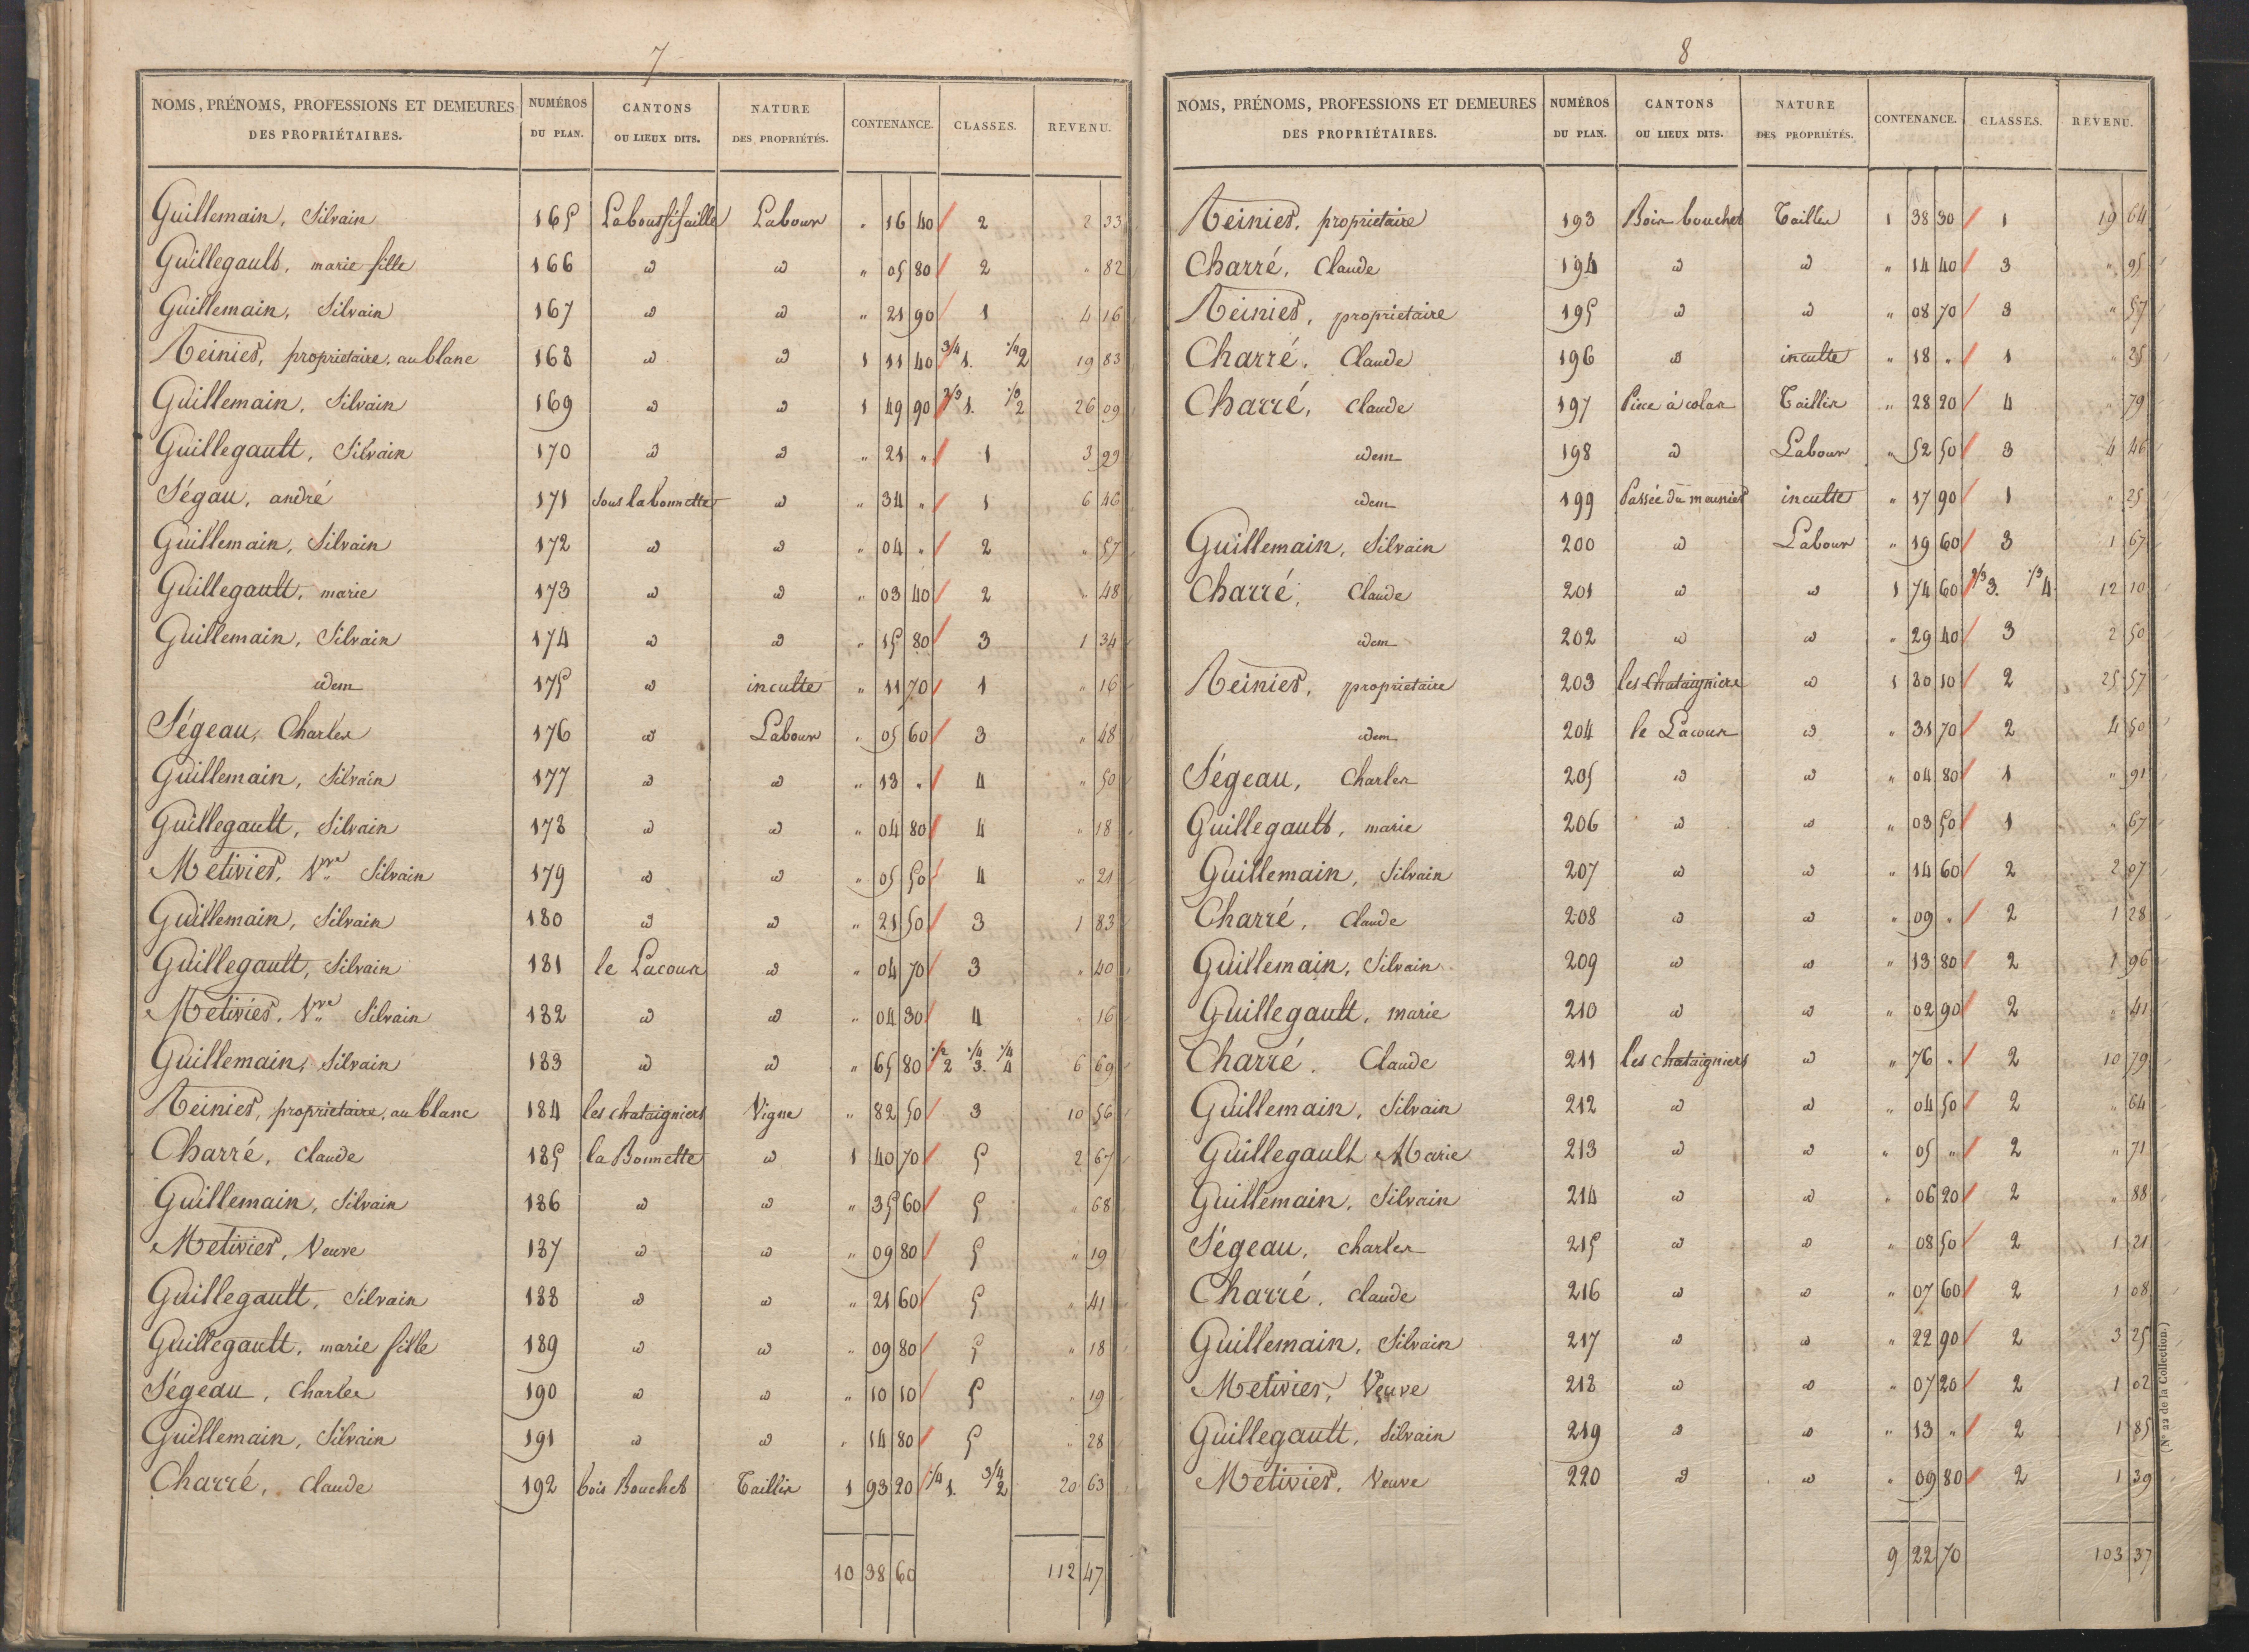 7
NOMS, PRÉNOMS, PROFESSIONS ET DEMEURES DES PROPRIÉTAIRES. NUMÉROS DU PLAN. CANTONS OU LIEUX DITS. NATURE DES PROPRIÉTÉS. CONTENANCE. CLASSES. REVENU.
Guillemain, Silvain 165 Laboussifaille Labour " 16 40 2 2 33
Guillegault, marie fille 166 id id " 05 80 2 " 82
Guillemain, Silvain 167 id id " 21 90 1 4 16
Teinier, proprietaire, au blanc 168 id id 1 11 40 3/4 1. 1/4 2 19 83
Guillemain, Silvain 169 id id 1 49 90 2/3 1. 1/3 2 26 09
Guillegault, Silvain 170 id id " 21 " 1 3 99
Ségau, andré 171 Sous la bonnette id " 34 " 1 6 46
Guillemain, Silvain 172 id id " 04 " 2 " 57
Guillegault, marie 173 id id " 03 40 2 " 48
Guillemain, Silvain 174 id id " 15 80 3 1 34
idem 175 id inculte " 11 70 1 " 16
Ségeau, Charles 176 id Labour " 05 60 3 " 48
Guillemain, Silvain 177 id id " 13 " 4 " 50
Guillegault, Silvain 178 id id " 04 80 4 " 18
Metivier, Vve Silvain 179 id id " 05 50 4 " 21
Guillemain, Silvain 180 id id " 21 50 3 1 83
Guillegault, Silvain 181 le Lacour id " 04 70 3 " 40
Metivier, Vve Silvain 182 id id " 04 30 4 " 16
Guillemain, Silvain 183 id id " 65 80 1/2 2 1/4 3. 1/4 4 6 69
Teinier, proprietaire, au blanc 184 les chataigniers Vigne " 82 50 3 10 56
Charré, Claude 185 la Bonnette id 1 40 70 5 2 67
Guillemain, Silvain 186 id id " 35 60 5 " 68
Metivier, Veuve 187 id id " 09 80 5 " 19
Guillegault, Silvain 188 id id " 21 60 5 " 41
Guillegault, marie fille 189 id id " 09 80 5 " 18
Ségeau, Charles 190 id id " 10 10 5 " 19
Guillemain, Silvain 191 id id " 14 80 5 " 28
Charré, Claude 192 bois Bouchet Taillis 1 93 20 1/4 1. 3/4 2 20 63
10 38 60 112 47
8
NOMS, PRÉNOMS, PROFESSIONS ET DEMEURES DES PROPRIÉTAIRES. NUMÉROS DU PLAN. CANTONS OU LIEUX DITS. NATURE DES PROPRIÉTÉS. CONTENANCE. CLASSES. REVENU.
Teinier, proprietaire 193 Bois bouchet Taillis 1 38 30 1 19 64
Charré, Claude 194 id id " 14 40 3 " 95
Teinier, proprietaire 195 id id " 08 70 3 " 57
Charré, Claude 196 id inculte " 18 " 1 " 25
Charré, Claude 197 Piece à colas Taillis " 28 20 4 " 79
idem 198 id Labour " 52 50 3 4 46
idem 199 Passée du meunier inculte " 17 90 1 " 25
Guillemain, Silvain 200 id Labour " 19 60 3 1 67
Charré, Claude 201 id id 1 74 60 2/3 3. 1/3 4 12 10
idem 202 id id " 29 40 3 2 50
Teinier, proprietaire 203 les Chataigniers id 1 80 10 2 25 57
idem 204 le Lacour id " 31 70 2 4 50
Ségeau, Charles 205 id id " 04 80 1 " 91
Guillegault, marie 206 id id " 03 50 1 " 67
Guillemain, Silvain 207 id id " 14 60 2 2 07
Charré, Claude 208 id id " 09 " 2 1 28
Guillemain, Silvain 209 id id " 13 80 2 1 96
Guillegault, marie 210 id id " 02 90 2 " 41
Charré, Claude 211 les chataigniers id " 76 " 2 10 79
Guillemain, Silvain 212 id id " 04 50 2 " 64
Guillegault Marie 213 id id " 05 " 2 " 71
Guillemain, Silvain 214 id id " 06 20 2 " 88
Ségeau, charles 215 id id " 08 50 2 1 21
Charré, claude 216 id id " 07 60 2 1 08
Guillemain, Silvain 217 id id " 22 90 2 3 25
Metivier, Veuve 218 id id " 07 20 2 1 02
Guillegault, Silvain 219 id id " 13 " 2 1 85
Metivier, Veuve 220 id id " 09 80 2 1 39
9 22 70 103 37
(N° 22 de la Collection.)